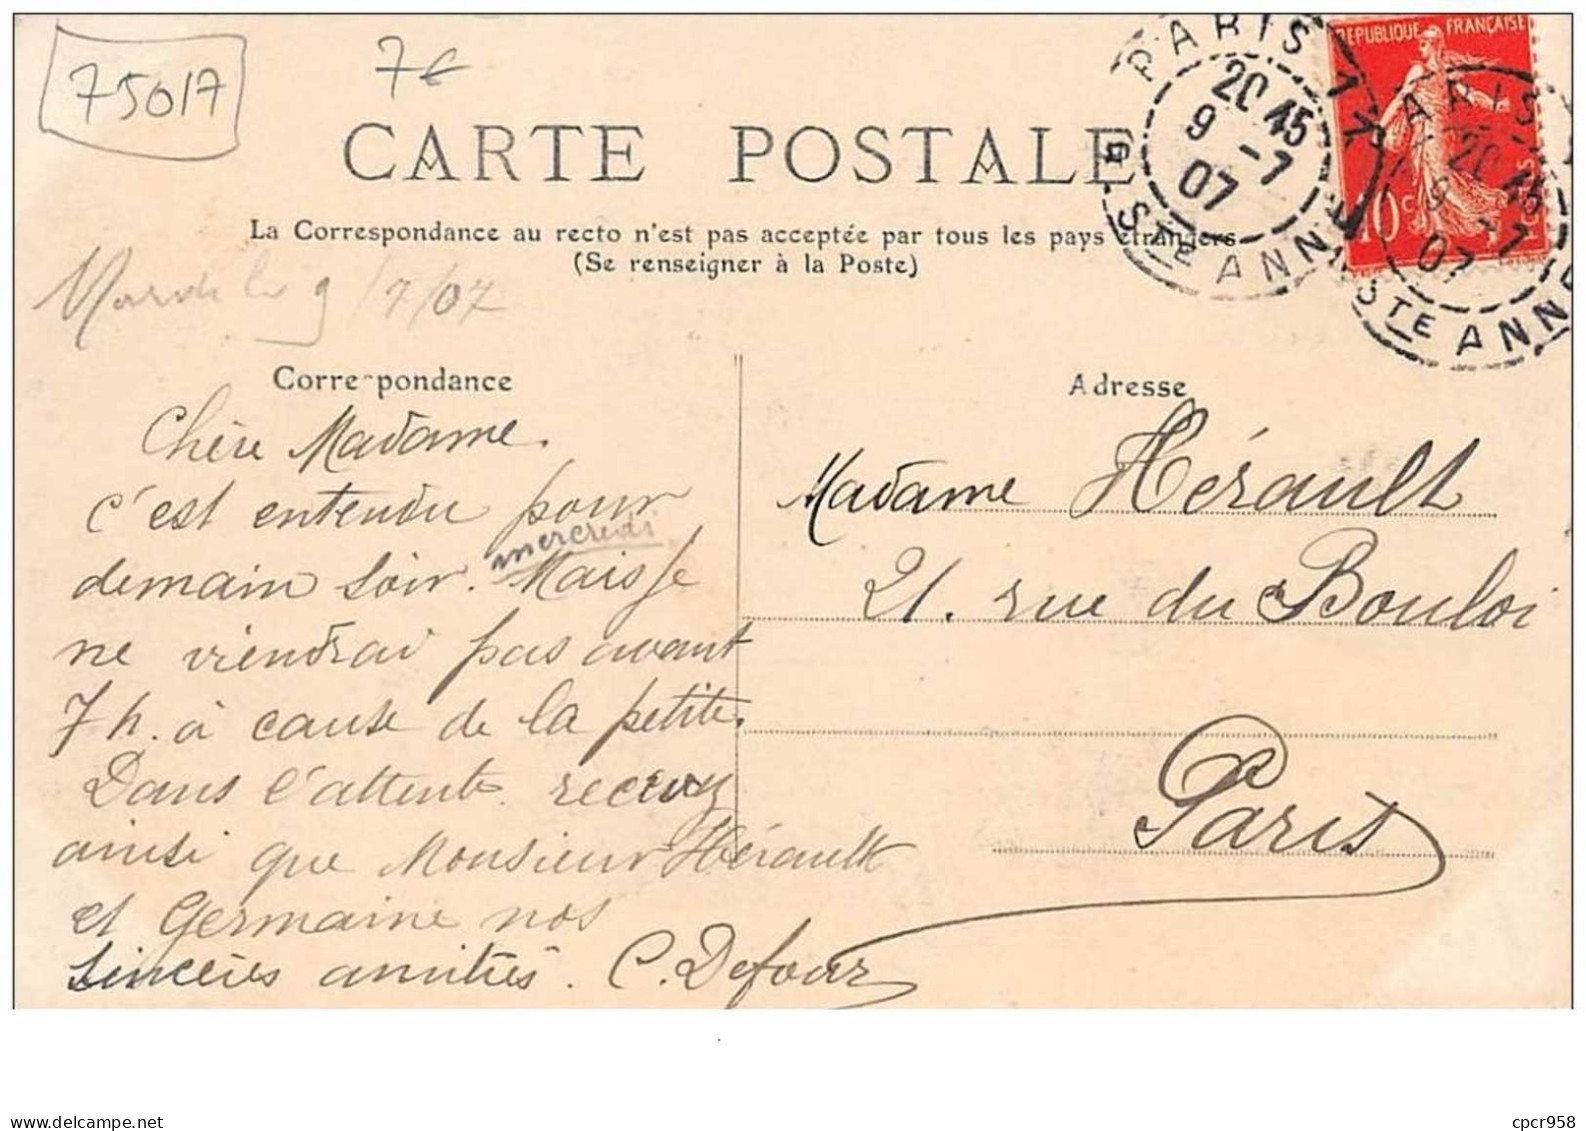 75017
7€
CARTE POSTALE
La Correspondance au recto n'est pas acceptée par tous les pays étrangers
(Se renseigner à la Poste)
REPUBLIQUE FRANÇAISE
10 c
PARIS 17
20 45
9 -7
07
STE ANNE
PARIS
20 45
9 -7
07
STE ANNE
Mardi le 9/7/07
Correspondance
Chère Madame.
c'est entendu pour
mercredi
demain soir. Mais je
ne viendrai pas avant
7 h. à cause de la petite.
Dans l'attente recevez
ainsi que Monsieur Hérault
et Germaine nos
sincères amitiés. C. Defour
Adresse
Madame Hérault
21. rue du Bouloi
Paris
75-PARIS17-SAN65150
cpcr958